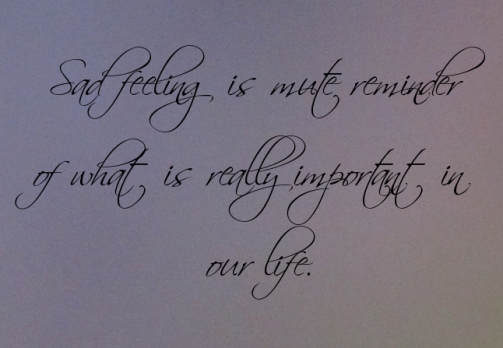 Sad feeling is mute reminder
of what is really important in
our life.